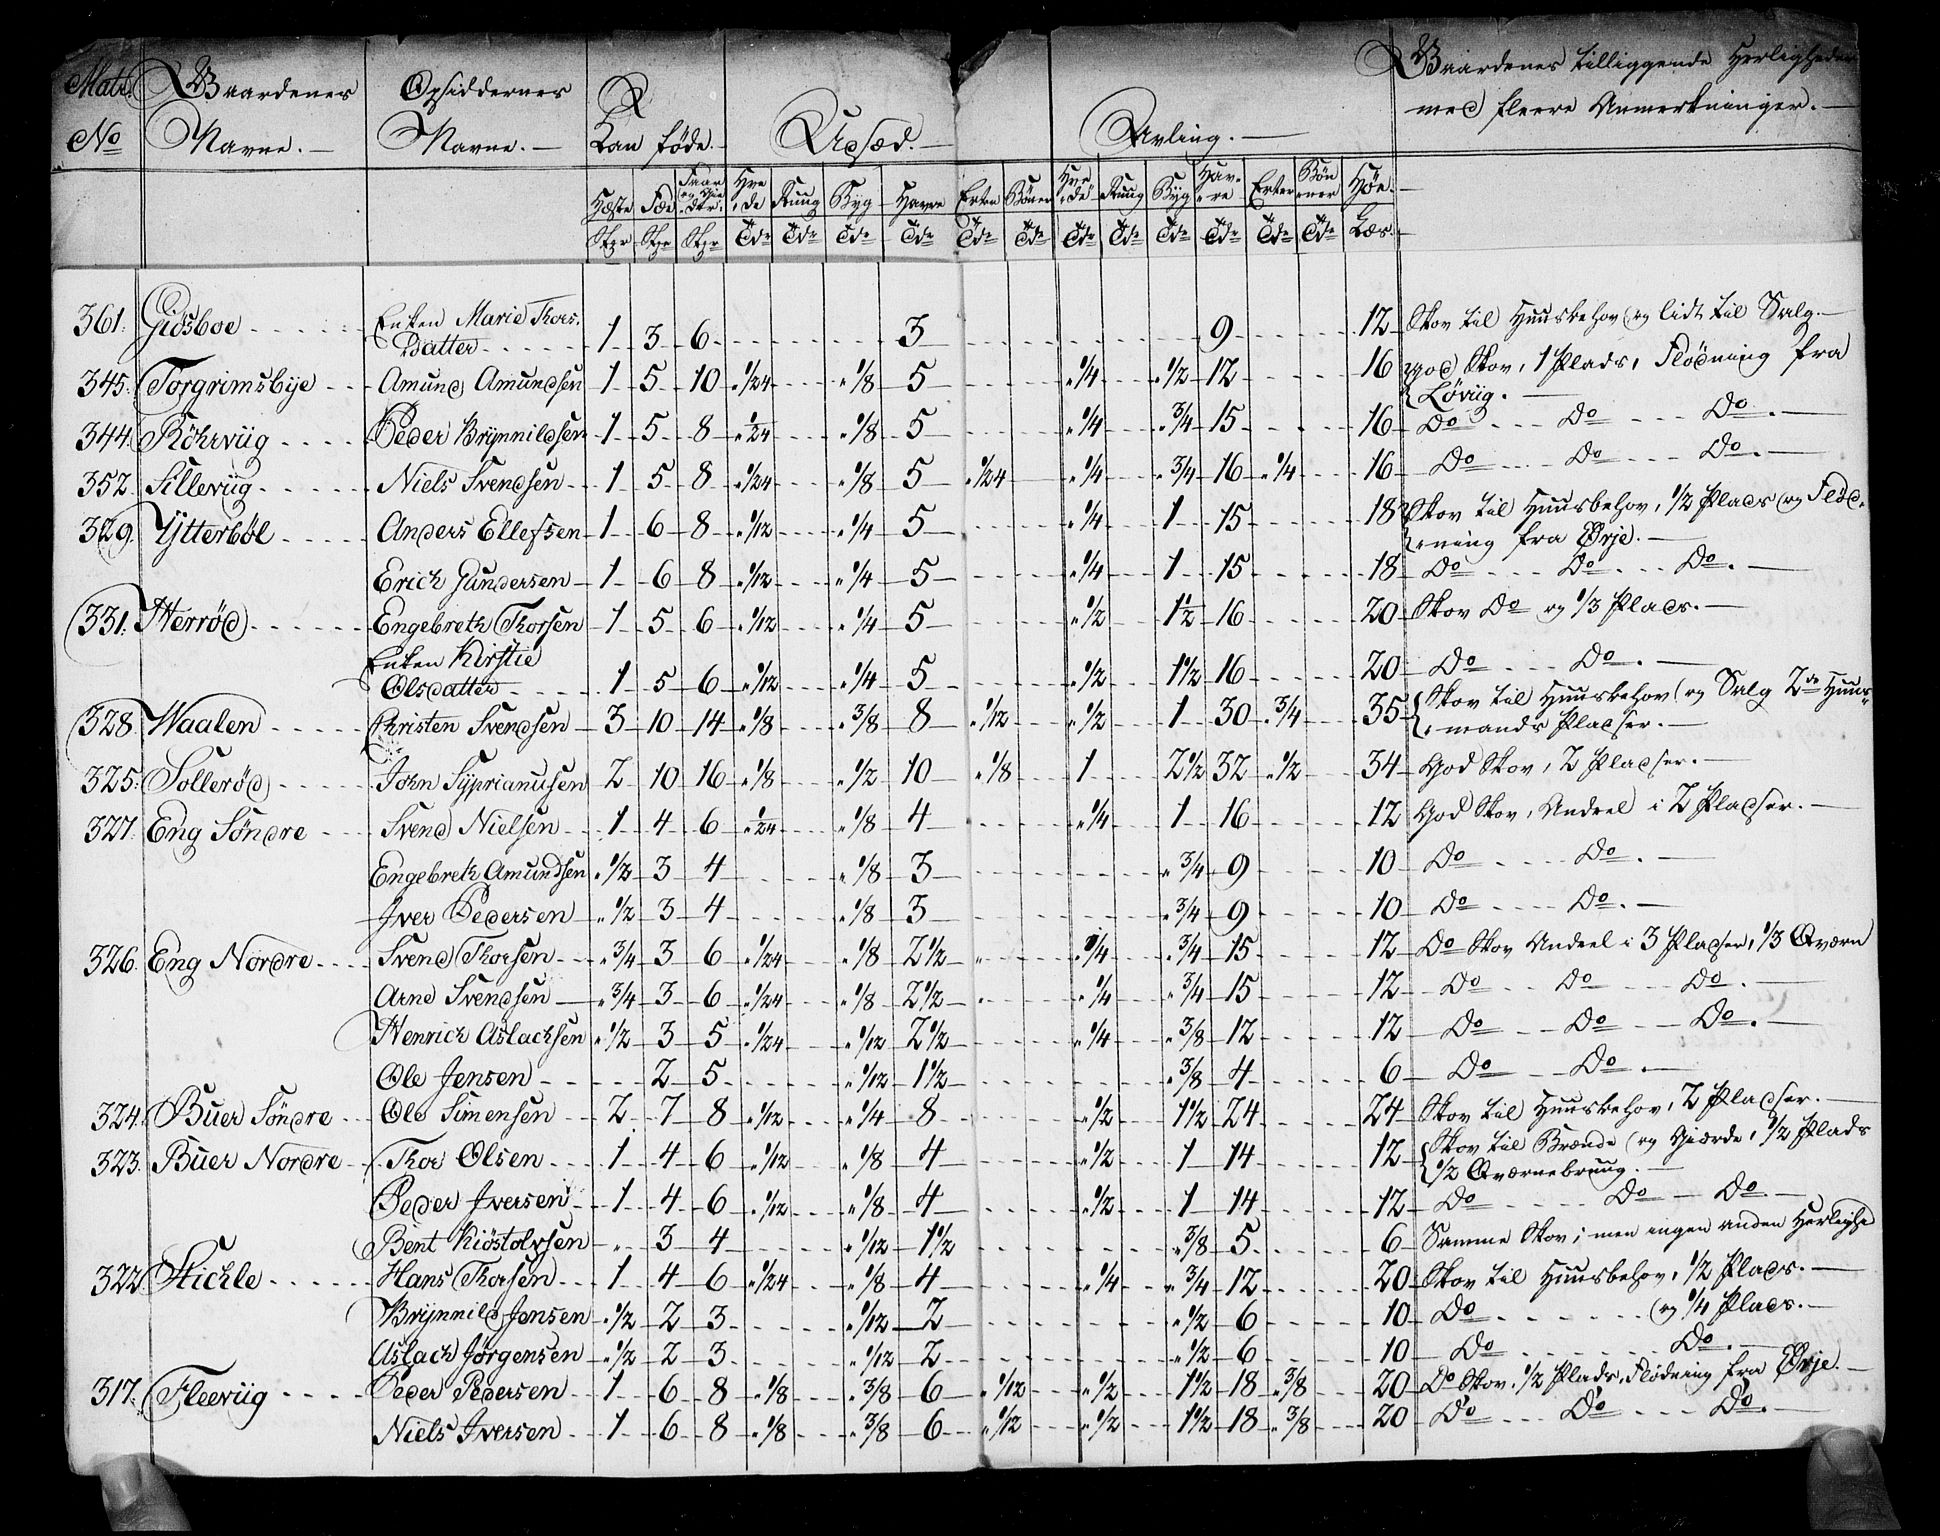 Matr. Gaardenes Opsiddernes Kan föde. Udsæd. Avling. Gaardenes tilliggende Herligheder
No Navne. Navne. med fleere Anmerkninger.
Hæste Fæe Faar og Gie-der. Hvede Rug Byg Havre Erter Bönner Hvede Rug Byg Havre Erter Bönner Höe.
Stkr Stkr Stkr Tdr Tdr Tdr Tdr Tdr Tdr Tdr Tdr Tdr Tdr Tdr Tdr Læs.
361. Giösboe Enken Marie Thors. Datter 1 3 6 3 9 12 Skov til Huusbehov og lidt til Salg.
345. Torgrimsbije Amund Amundsen 1 5 10 " 1/24 " 1/8 5 " 1/4 " 1/2 12 16 god Skov, 1 Plads, Flödning fra
Löviig.
344. Röhrviig Peder Brÿnnildsen 1 5 8 " 1/24 " 1/8 5 " 1/4 " 3/4 15 16 Do Do Do.
352. Silleviig Niels Svendsen 1 5 8 " 1/24 " 1/8 5 " 1/24 " 1/4 " 3/4 16 " 1/4 16 Do Do Do.
329. Ytterböl Anders Ellefsen 1 6 8 " 1/12 " 1/4 5 " 1/4 1 15 18 Skov til Huusbehov, 1/2 Plads og Flöd-
ning fra Ørje.
Erich Gundersen 1 6 8 " 1/12 " 1/4 5 " 1/4 1 15 18 Do Do Do.
331. Herröd Engebreth Thorsen 1 5 6 " 1/12 " 1/4 5 " 1/2 1 1/2 16 20 Skov Do og 1/3 Plads.
Enken Kirstie
Olsdatter 1 5 6 " 1/12 " 1/4 5 " 1/2 1 1/2 16 20 Do Do.
328. Waalen Christen Svendsen 3 10 14 " 1/8 " 3/8 8 " 1/12 " 1/2 1 30 " 3/4 35 Skov til Huusbehov og Salg 2de Huus-
mands Pladser.
325. Solleröd John Syprianusen 2 10 16 " 1/8 " 1/2 10 " 1/8 1 2 1/2 32 " 1/2 34 God Skov, 2 Pladser.
327. Eng Söndre Svend Nielsen 1 4 6 " 1/24 " 1/8 4 " 1/4 1 16 12 God Skov, Andeel i 2 Pladser.
Engebreth Amundsen " 1/2 3 4 " 1/8 3 " 3/4 9 10 Do Do.
Iver Pedersen " 1/2 3 4 " 1/8 3 " 3/4 9 10 Do Do.
326. Eng Nordre Svend Thorsen " 3/4 3 6 " 1/24 " 1/8 2 1/2 " " 1/4 " 3/4 15 12 Do Skov Andeel i 3 Pladser, 1/3 Qværn
Arne Svendsen " 3/4 3 6 " 1/24 " 1/8 2 1/2 " " 1/4 " 3/4 15 12 Do Do Do.
Henrich Aslachsen " 1/2 3 5 " 1/24 " 1/12 2 1/2 " 1/4 " 3/8 12 12 Do Do Do.
Ole Jensen 2 5 " 1/12 1 1/2 " 3/8 4 6 Do Do.
324. Buer Söndre Ole Simensen 2 7 8 " 1/12 " 1/4 8 " 1/2 1 1/2 24 24 Skov til Huusbehov, 2 Pladser.
323. Buer Nordre Thor Olsen 1 4 6 " 1/12 " 1/8 4 " 1/2 1 14 12 Skov til Brænde og Gierde, 1/2 Plads
1/2 Qværnebruug.
Peder Iversen 1 4 6 " 1/12 " 1/8 4 " 1/2 1 14 12 Do Do Do
Bent Kiöstolvsen " 3 4 " 1/12 1 1/2 " 3/8 5 6 Samme Skov; men ingen anden Herlighe
322. Stichle Hans Thorsen 1 4 6 " 1/24 " 1/8 4 " 1/4 " 3/4 12 20 Skov til Huusbehov, 1/2 Plads.
Brÿnnild Jensen " 1/2 2 3 " 1/12 2 " 1/2 6 10 Do og 1/4 Plads.
Aslach Jörgensen " 1/2 2 3 " 1/12 2 " 1/2 6 10 Do Do.
317. Fleeviig Peder Pedersen 1 6 8 " 1/8 " 3/8 6 " 1/12 " 1/2 1 1/2 18 " 3/8 20 Do Skov, 1/2 Plads, Flödning fra Ørje.
Niels Iversen 1 6 8 " 1/8 " 3/8 6 " 1/12 " 1/2 1 1/2 18 " 3/8 20 Do Do Do.